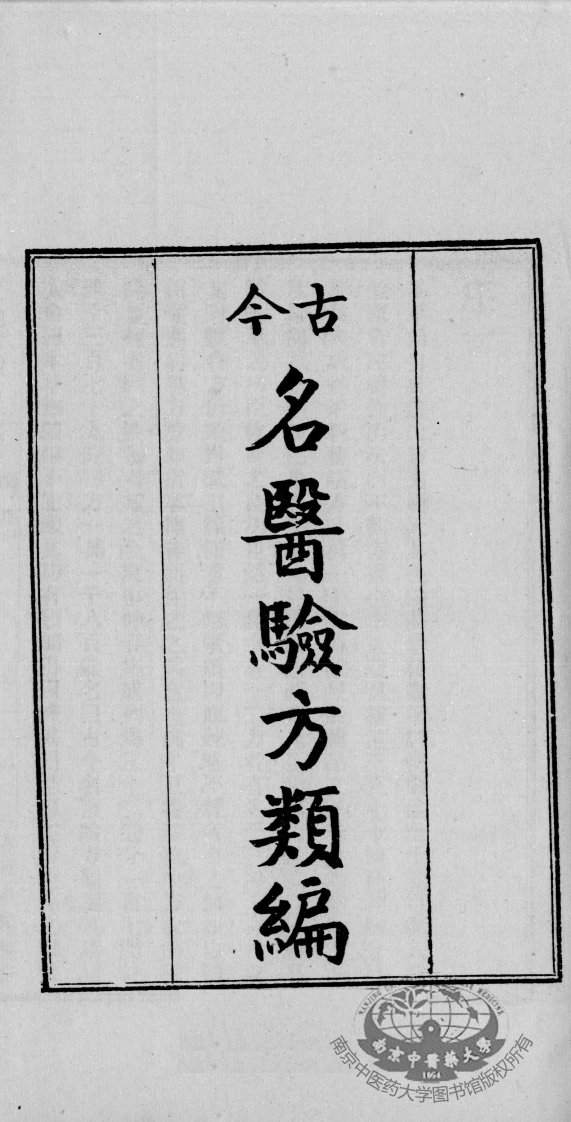 古今
名醫驗方類編
南京中醫藥大學
1954
南京中医药大学图书馆版权所有